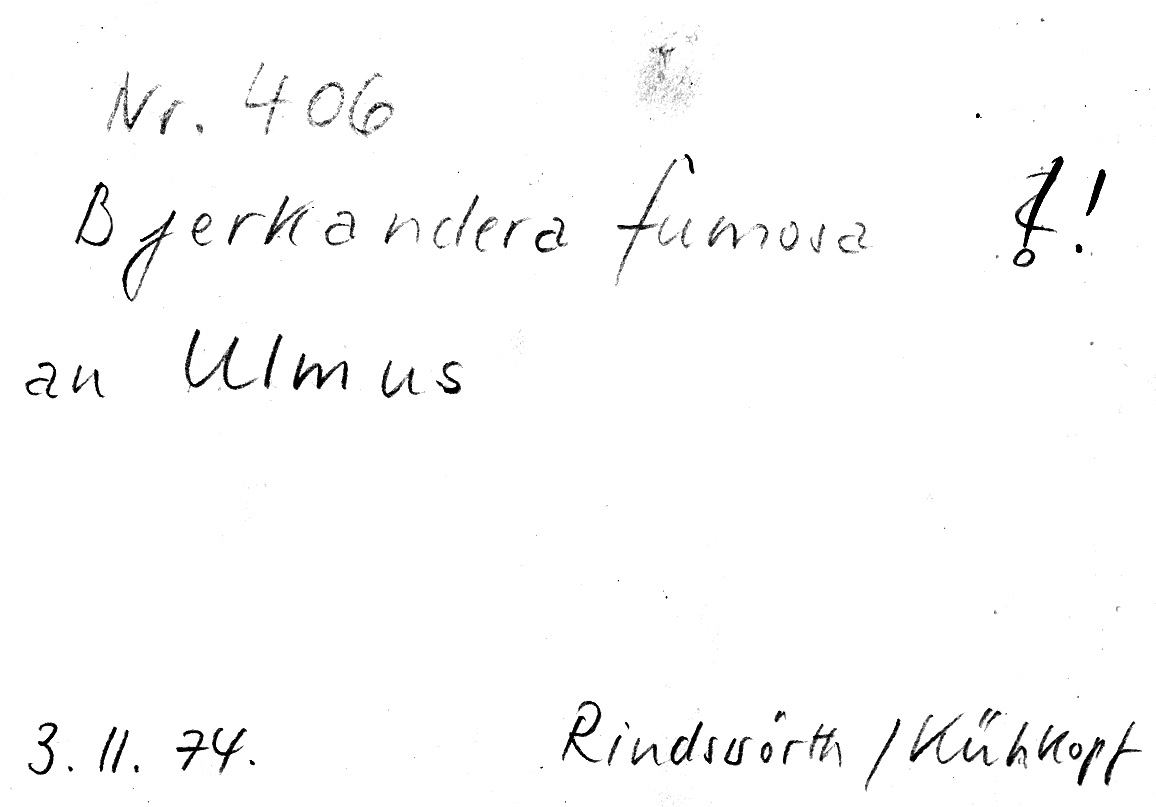 Nr. 406
Bjerkandera fumosa !!
an Ulmus
3.11.74. Rindswörth / Kühkopf